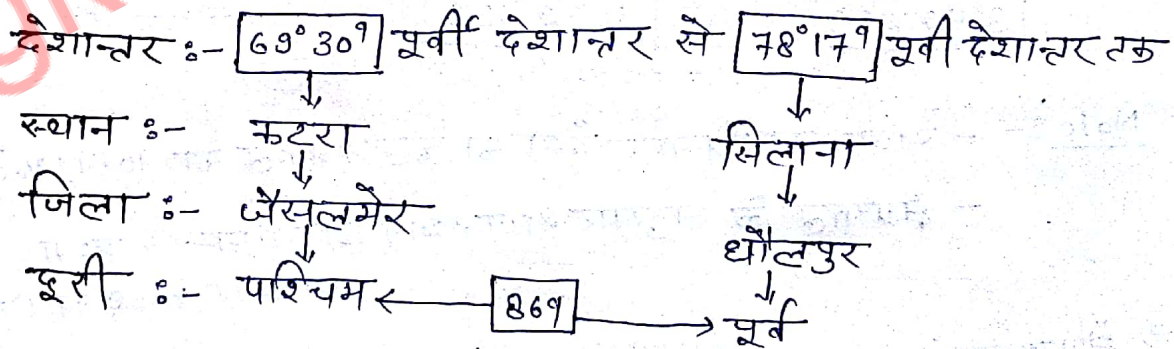 देशान्तर :- 69° 30' पूर्वी देशान्तर से 78° 17' पूर्वी देशान्तर तक
स्थान :- कटरा सिलाना
जिला :- जैसलमेर धौलपुर
दूरी :- पश्चिम 869 पूर्व